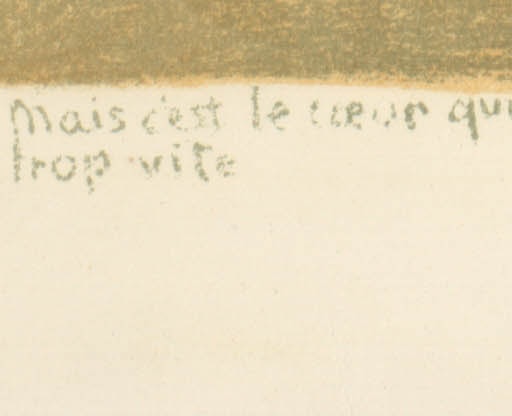 Mais c'est le cœur qui
trop vite